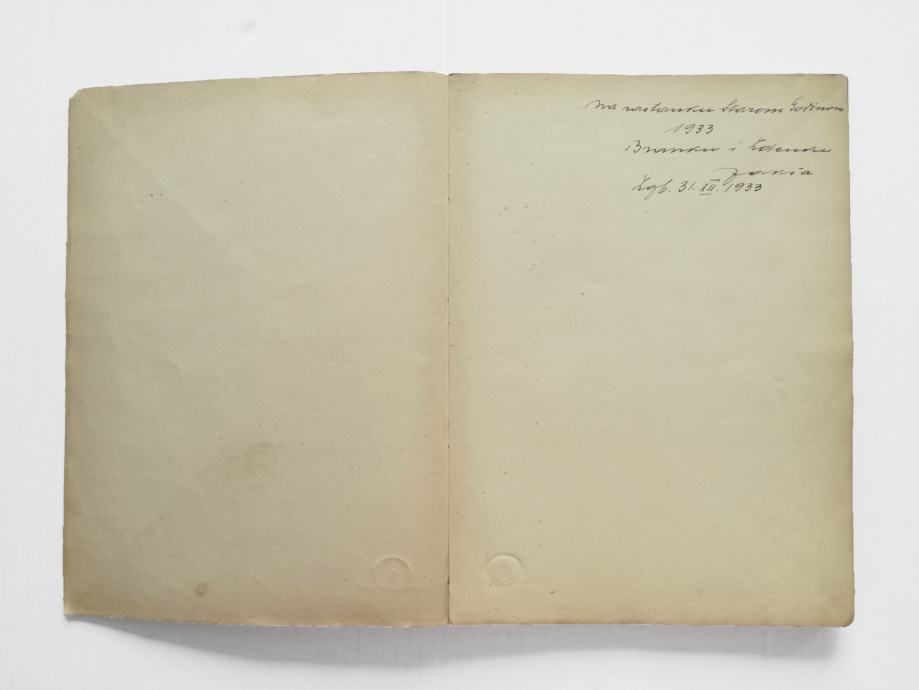 Na rastanku Starom Godinom
1933
Branku i Zdenke
Zgb. 31. XII. 1933